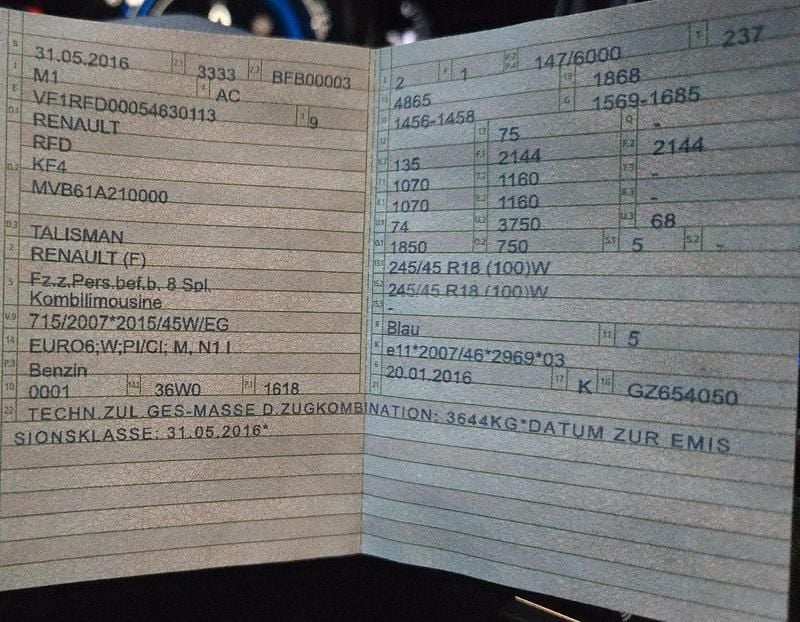 31.05.2016 3333 BFB00003
M1 AC
VF1RFD00054630113 9
RENAULT
RFD
KF4
MVB61A210000
TALISMAN
RENAULT (F)
Fz.z.Pers.bef.b. 8 Spl.
Kombilimousine
715/2007*2015/45W/EG
EURO6;W;PI/CI; M, N1 I
Benzin
0001 36W0 1618
2 1 147/6000 237
4865 1868
1456-1458 1569-1685
75 -
135 2144 2144
1070 1160 -
1070 1160 -
74 3750 68
1850 750 5 -
245/45 R18 (100)W
245/45 R18 (100)W
-
Blau 5
e11*2007/46*2969*03
20.01.2016 K GZ654050
TECHN.ZUL.GES-MASSE D.ZUGKOMBINATION: 3644KG*DATUM ZUR EMIS
SIONSKLASSE: 31.05.2016*